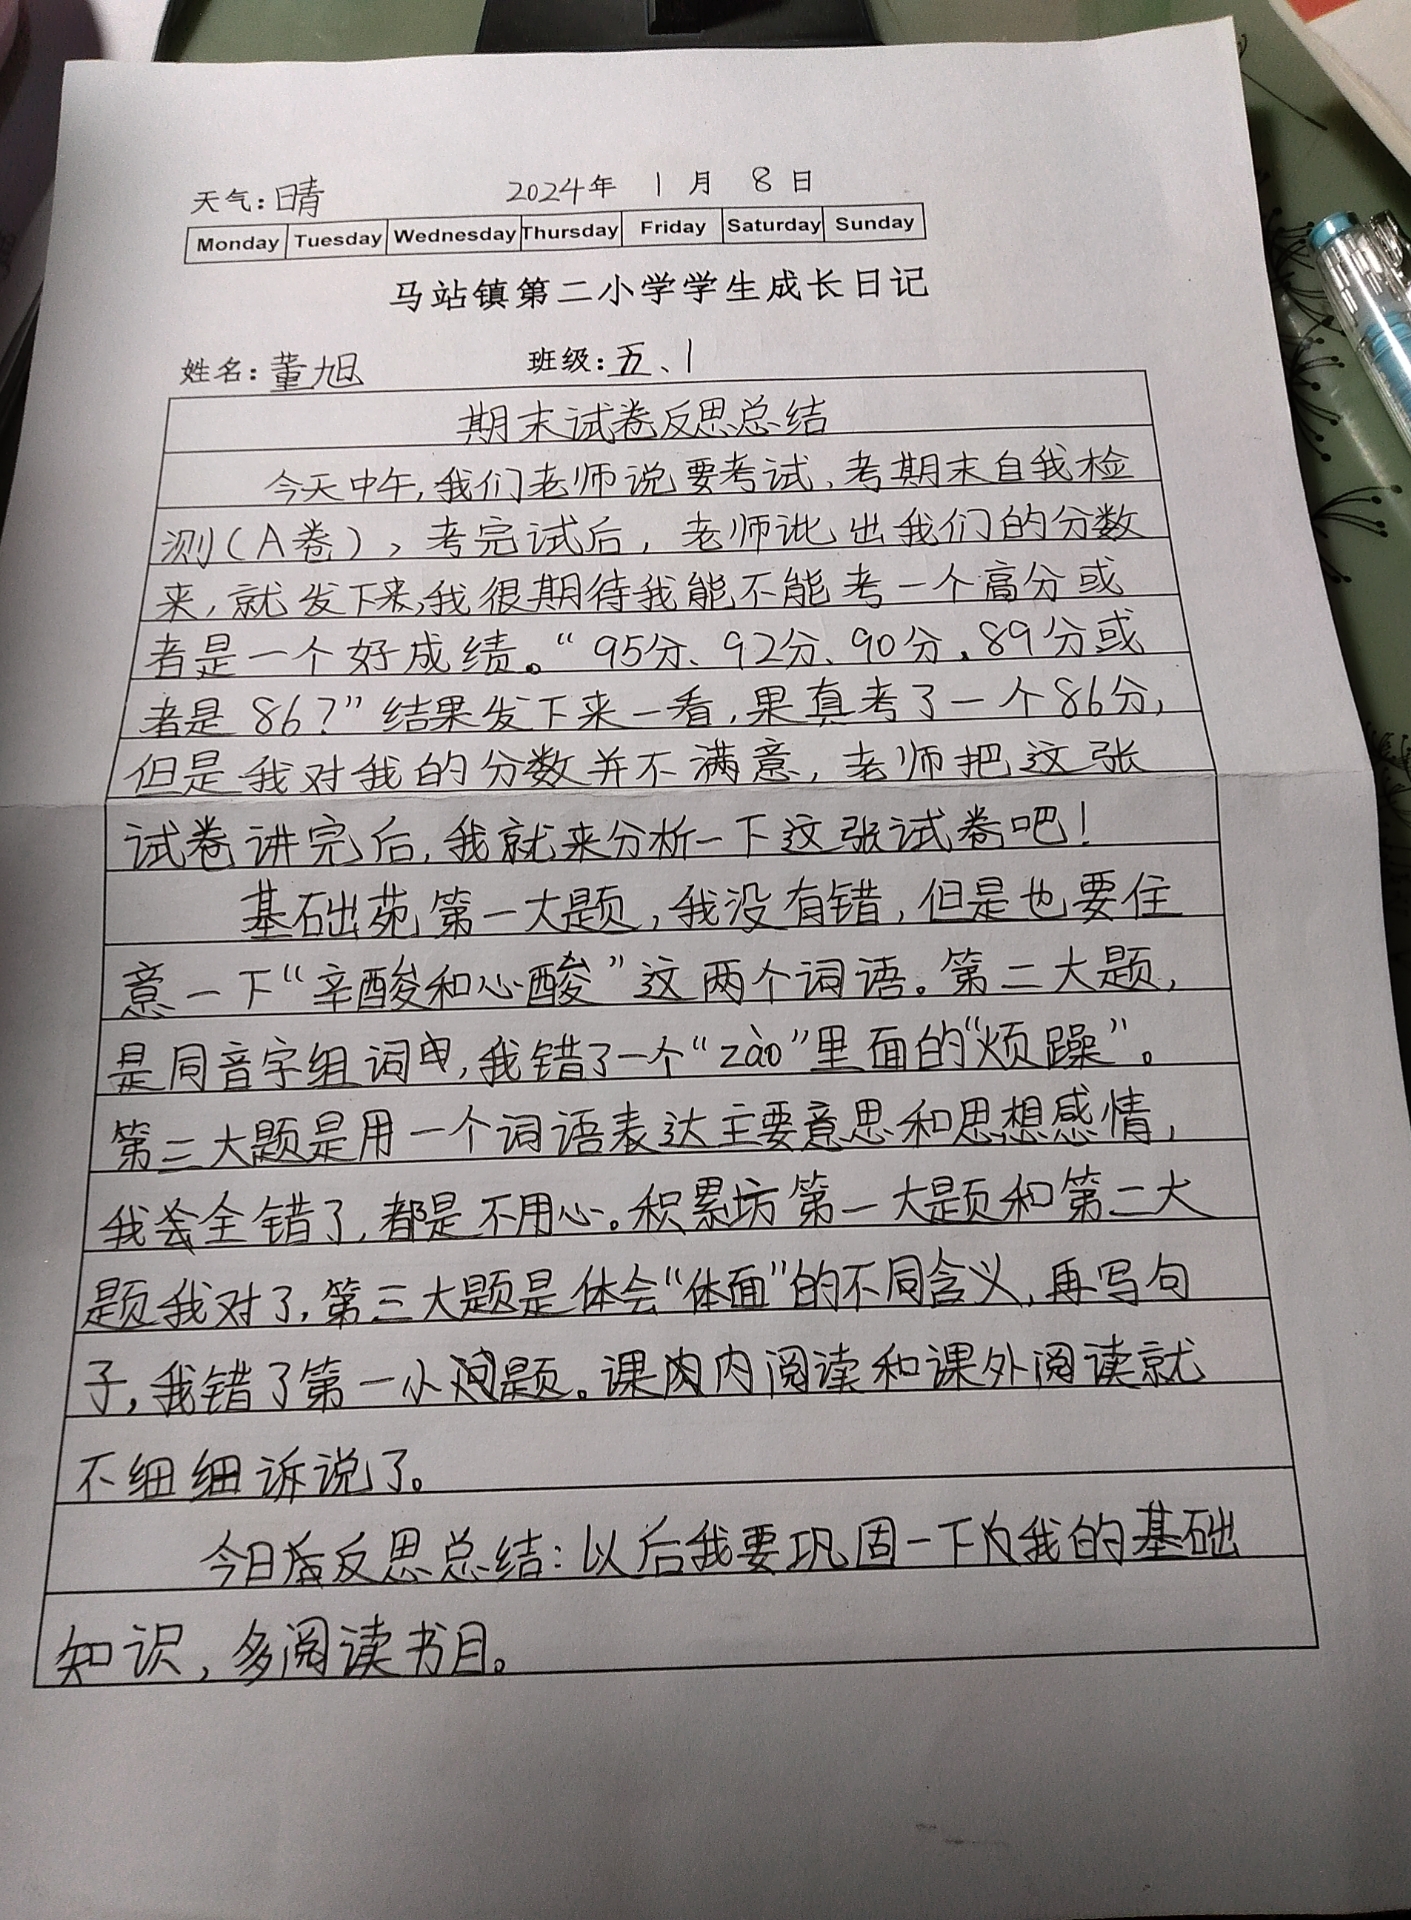 天气：晴 2024年 1月 8日
Monday Tuesday Wednesday Thursday Friday Saturday Sunday
马站镇第二小学学生成长日记
姓名：董旭 班级：五、1
期末试卷反思总结
今天中午，我们老师说要考试，考期末自我检
测（A卷），考完试后，老师批出我们的分数
来，就发下来，我很期待我能不能考一个高分或
者是一个好成绩。“95分、92分、90分、89分或
者是86？”结果发下来一看，果真考了一个86分，
但是我对我的分数并不满意，老师把这张
试卷讲完后，我就来分析一下这张试卷吧！
基础苑第一大题，我没有错，但是也要住
意一下“辛酸和心酸”这两个词语。第二大题，
是同音字组词，我错了一个“zào”里面的“烦躁”。
第三大题是用一个词语表达主要意思和思想感情，
我全错了，都是不用心。积累坊第一大题和第二大
题我对了，第三大题是体会“体面”的不同含义，再写句
子，我错了第一小题。课内阅读和课外阅读就
不细细诉说了。
今日反思总结：以后我要巩固一下我的基础
知识，多阅读书目。